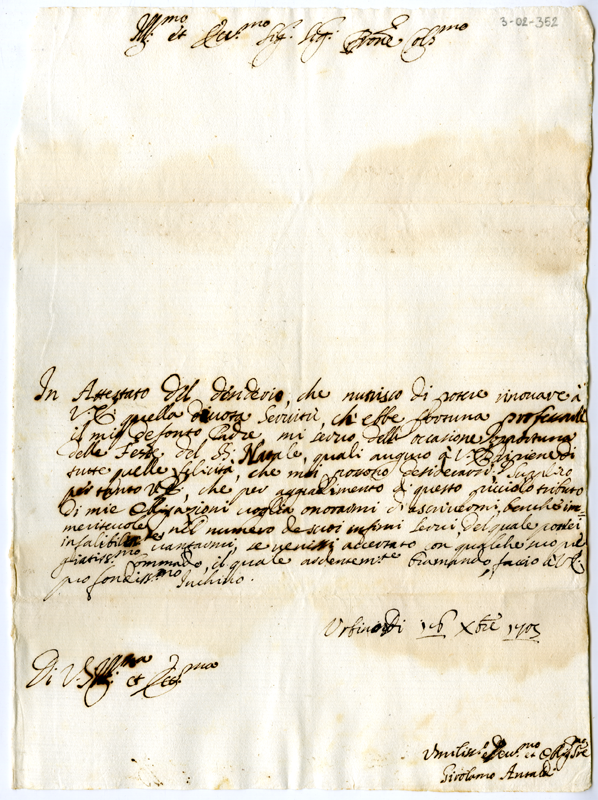 3-02-352
Ill.mo et Rev.mo Sig.r Sig.r Prone Col.mo
In Attestato del desiderio, che nutrisco di potere rinovare à
V.S. quella divota Servitù, ch'ebbe fortuna professarle
il mio defonto Padre, mi servo della occasione opportuna
delle Feste del S. Natale, quali auguro à V.S. ripiene di
tutte quelle felicità, che mai possono desiderarsi. Supplico
per tanto V.S., che per aggradimento di questo picciolo tributo
di mie obligazioni voglia onorarmi d'ascrivermi, benche im-
meritevole, nel numero de suoi infimi servi, del quale potrei
infalibilm.te vantarmi, se venissi accertato con qualche suo re
giatiss.mo commando, il quale ardentem.te bramando, faccio à V.S.
profondiss.mo Inchino.
Urbino di 16 Xbre 1705
Di V.S. Ill.ma et Rev.ma
Umiliss.o Dev.mo et Oblig.mo Sre
Girolamo Antaldi